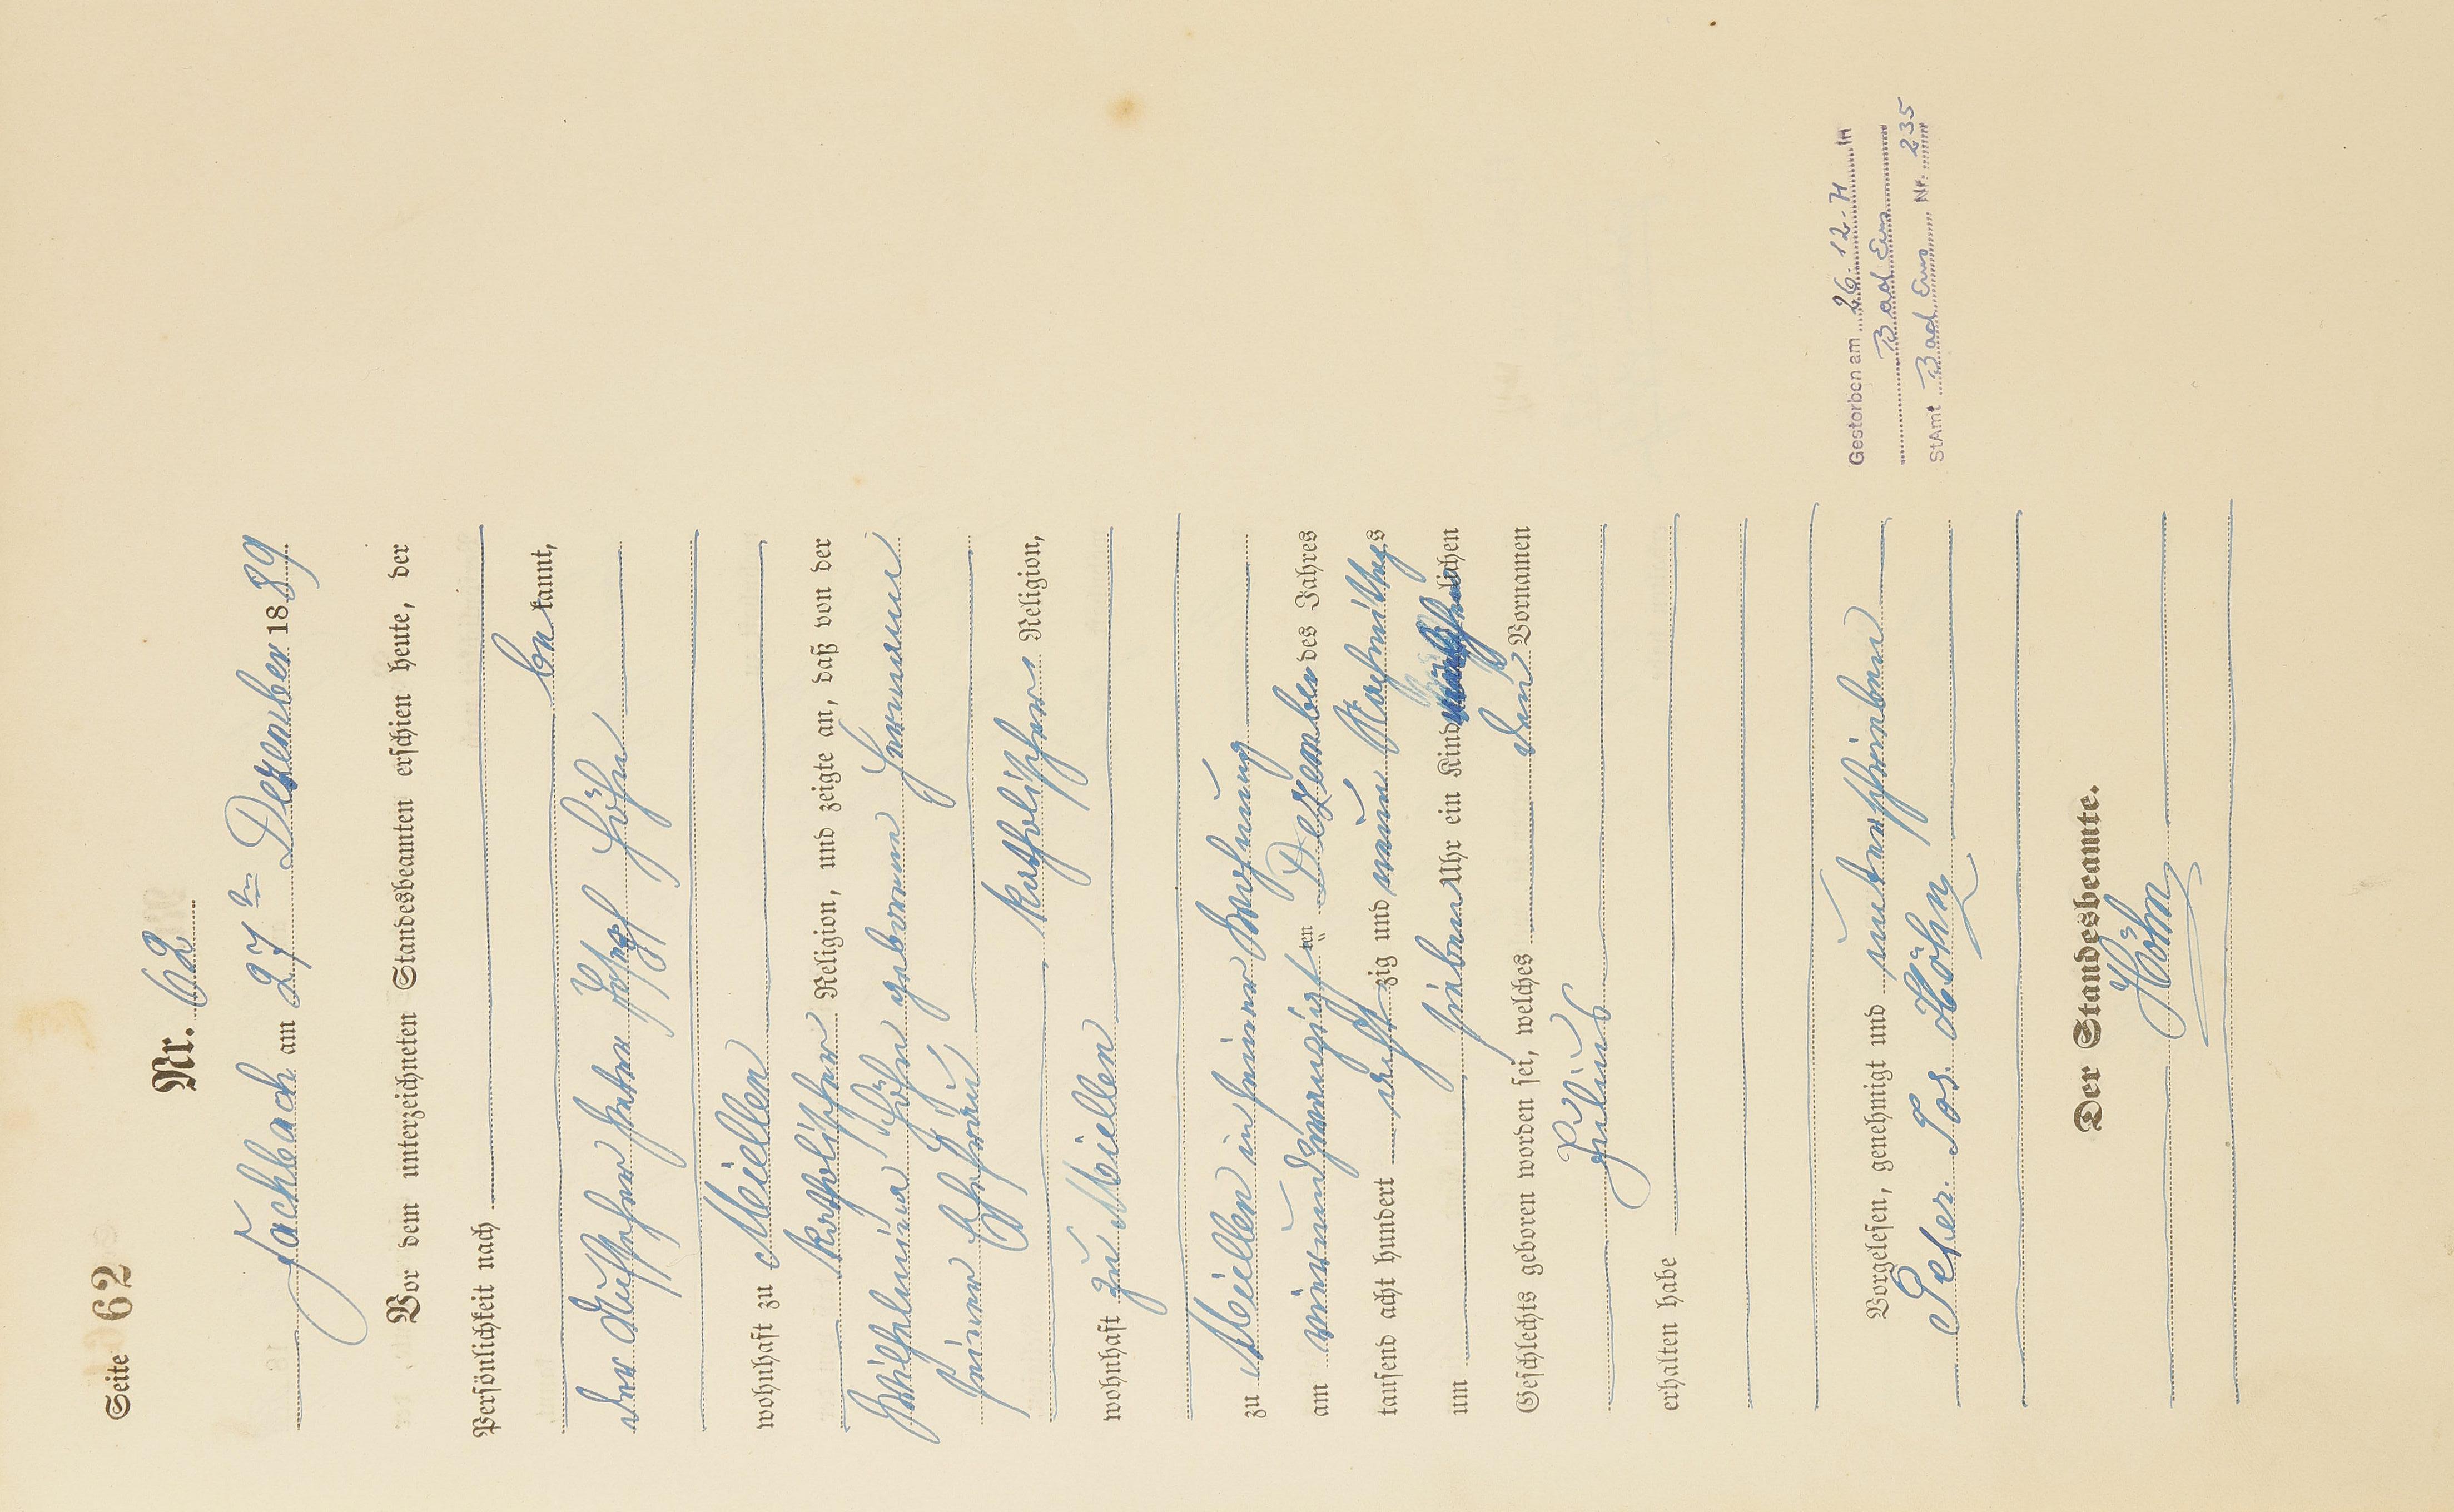 Seite 62
Nr. 62
Fachbach am 27ten Dezember 1889.
Vor dem unterzeichneten Standesbeamten erschien heute, der
Persönlichkeit nach
be kannt,
der Aufseher Peter Josef Höhn
wohnhaft zu Miellen
katholischer Religion, und zeigte an, daß von der
Wilhelmina Höhn geborenen
seiner Ehefrau
katholischer Religion,
wohnhaft zu Miellen
zu Miellen in seiner Wohnung
am vierundzwanzigsten Dezember des Jahres
tausend acht hundert achtzig und neun Nachmittags
um sieben Uhr ein Kind männlichen
Geschlechts geboren worden sei, welches den Vornamen
Julius
erhalten habe
Vorgelesen, genehmigt und unterschrieben
Peter Jos. Höhn
Der Standesbeamte.
Höhn
Gestorben am 26.12.71 in
Bad Ems
StAmt Bad Ems Nr. 235